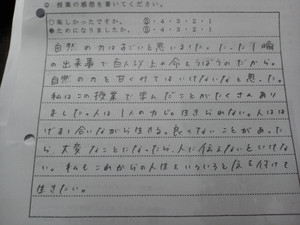 ② 授業の感想を書いてください。
○楽しかったですか。 ⑤・4・3・2・1
●ためになりましたか。 ⑤・4・3・2・1
自然の力はすごいと思いました。たった1瞬
の出来事で百人以上の命をうばうのだから。
自然の力を甘くみてはいけないなと思った。
私はこの授業で学んだことがたくさんあり
ました。人は1人の力じゃ生きられない。人はは
げまし合いながら生きる。良くないことがあった
ら大変なことになったら、人に伝えないといけ
ない。私もこれからの人生といろいろと気を付けて
生きたい。